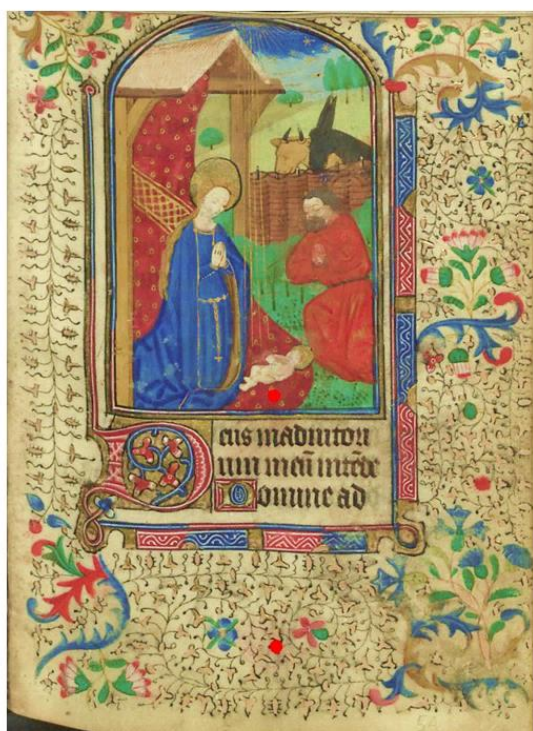 Deus in adiutori
um meū intēde
Domine ad